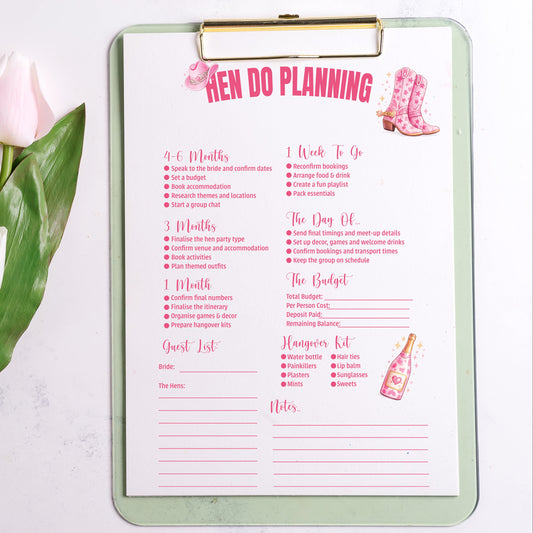 HEN DO PLANNING
4-6 Months
Speak to the bride and confirm dates
Set a budget
Book accommodation
Research themes and locations
Start a group chat
3 Months
Finalise the hen party type
Confirm venue and accommodation
Book activities
Plan themed outfits
1 Month
Confirm final numbers
Finalise the itinerary
Organise games & decor
Prepare hangover kits
Guest List
Bride:
The Hens:
1 Week To Go
Reconfirm bookings
Arrange food & drink
Create a fun playlist
Pack essentials
The Day Of...
Send final timings and meet-up details
Set up decor, games and welcome drinks
Confirm bookings and transport times
Keep the group on schedule
The Budget
Total Budget:
Per Person Cost:
Deposit Paid:
Remaining Balance:
Hangover Kit
Water bottle
Painkillers
Plasters
Mints
Hair ties
Lip balm
Sunglasses
Sweets
Notes...